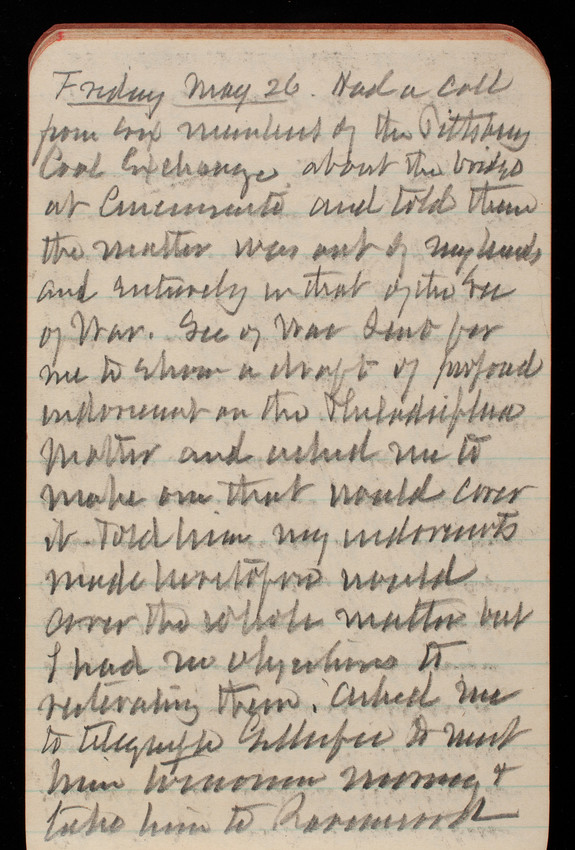 Friday May 26. Had a call
from six members of the Pittsburg
Coal Exchange about the bridge
at Cincinnati and told them
the matter was out of my hands
and entirely in that of the Sec
of War. Sec of War sent for
me to show a draft of proposed
indorsement on the Philadelphia
Matter and asked me to
make one that would cover
it. Told him my indorsements
made heretofore would
cover the whole matter but
I had no objections to
reiterating them. Asked me
to telegraph Gillespie to meet
him tomorrow morning &
take him to